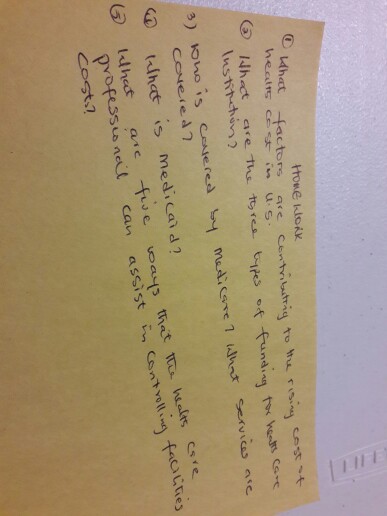 HOMEWORK
① What factors are contributing to the rising cost of
health cost in U.S.
② What are the three types of funding for health care
Institution?
3) Who is covered by medicare? What services are
covered?
④ What is medicaid?
⑤ What are five ways that the health care
professional can assist in controlling facilities
costs?